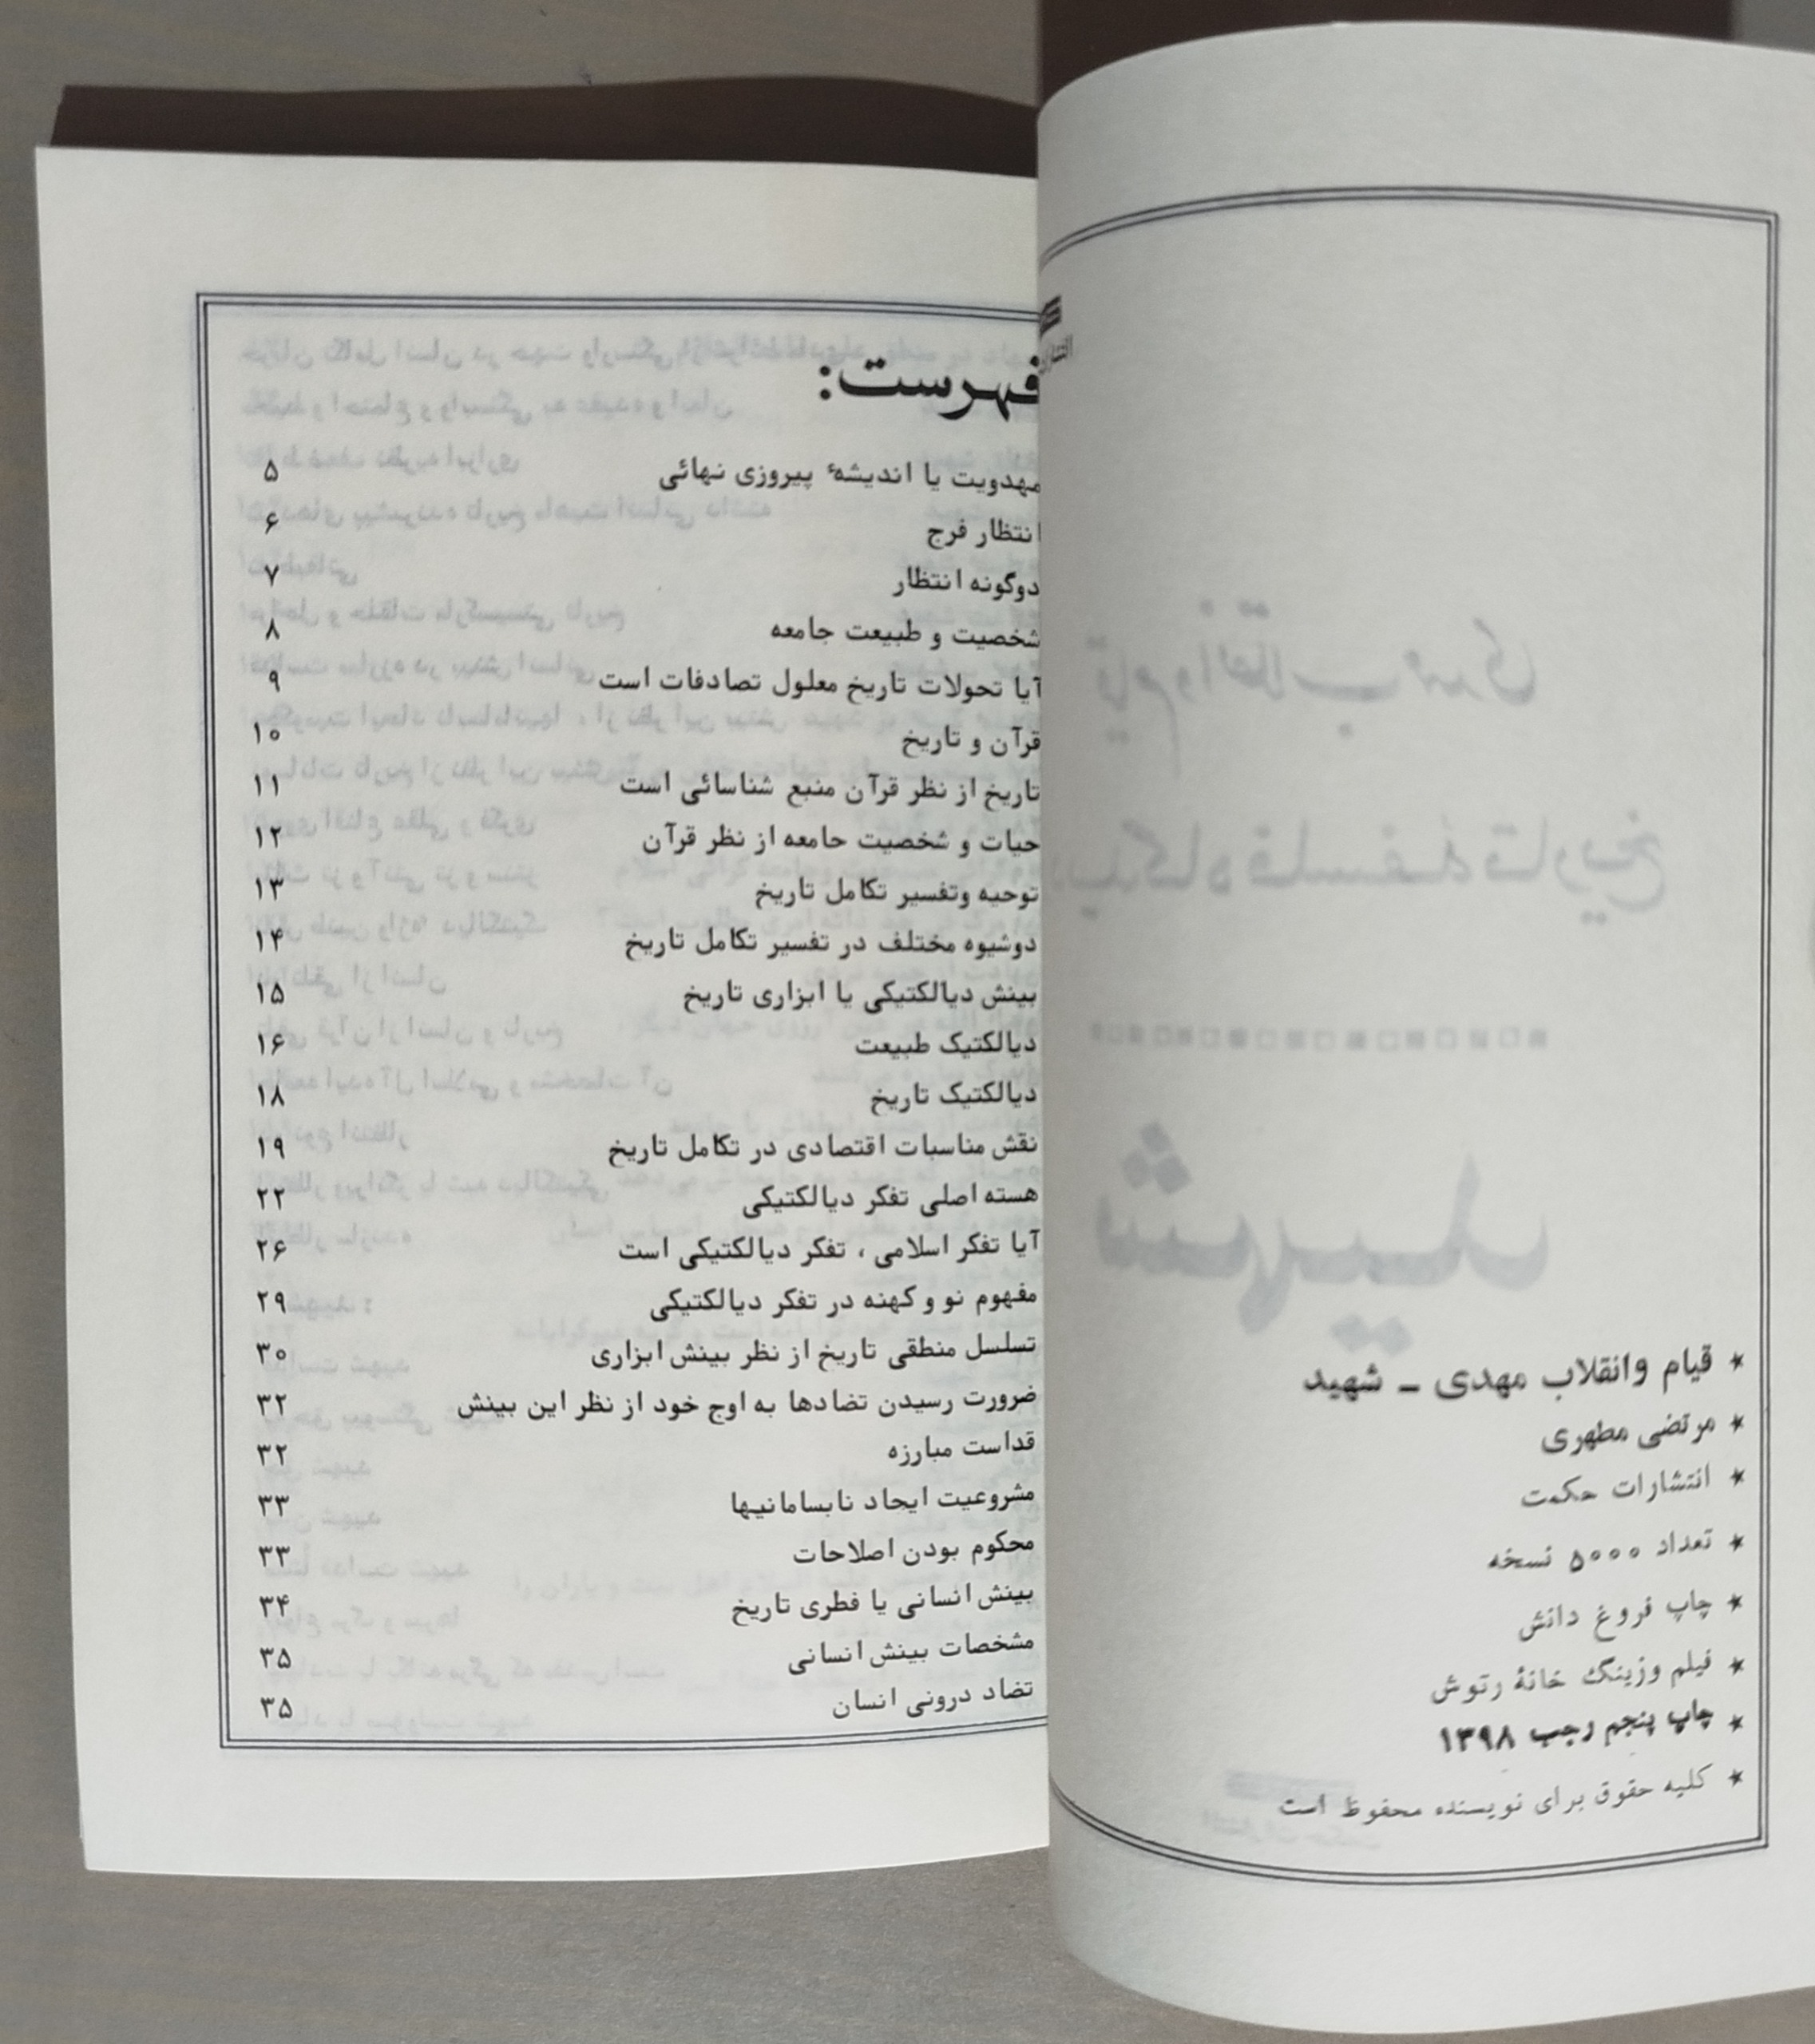 * قیام وانقلاب مهدی ـ شهید
* مرتضی مطهری
* انتشارات حکمت
* تعداد ۵۰۰۰ نسخه
* چاپ فروغ دانش
* فیلم وزینگ خانهٔ رتوش
* چاپ پنجم رجب ۱۳۹۸
* کلیه حقوق برای نویسنده محفوظ است
فهرست:
مهدویت یا اندیشهٔ پیروزی نهائی ۵
انتظار فرج ۶
دوگونه انتظار ۷
شخصیت و طبیعت جامعه ۸
آیا تحولات تاریخ معلول تصادفات است ۹
قرآن و تاریخ ۱۰
تاریخ از نظر قرآن منبع شناسائی است ۱۱
حیات و شخصیت حامعه از نظر قرآن ۱۲
توحیه وتفسیر تکامل تاریخ ۱۳
دوشیوه مختلف در تفسیر تکامل تاریخ ۱۴
بینش دیالکتیکی یا ابزاری تاریخ ۱۵
دیالکتیک طبیعت ۱۶
دیالکتیک تاریخ ۱۸
نقش مناسبات اقتصادی در تکامل تاریخ ۱۹
هسته اصلی تفکر دیالکتیکی ۲۲
آیا تفکر اسلامی ، تفکر دیالکتیکی است ۲۶
مفهوم نو و کهنه در تفکر دیالکتیکی ۲۹
تسلسل منطقی تاریخ از نظر بینش ابزاری ۳۰
ضرورت رسیدن تضادها به اوج خود از نظر این بینش ۳۲
قداست مبارزه ۳۲
مشروعیت ایجاد نابسامانیها ۳۳
محکوم بودن اصلاحات ۳۳
بینش انسانی یا فطری تاریخ ۳۴
مشخصات بینش انسانی ۳۵
تضاد درونی انسان ۳۵